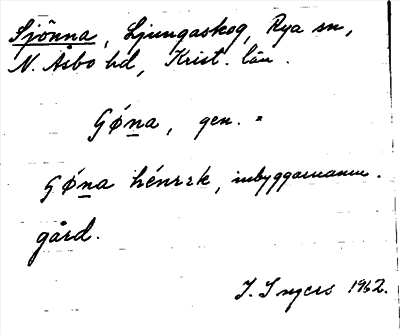 Sjönna, Ljungaskog, Rya sn,
N. Åsbo hd, Krist. län.
Gǿna, gen. =
Gǿna hénrɪk, inbyggarnamn.
gård.
I. Ingers 1962.